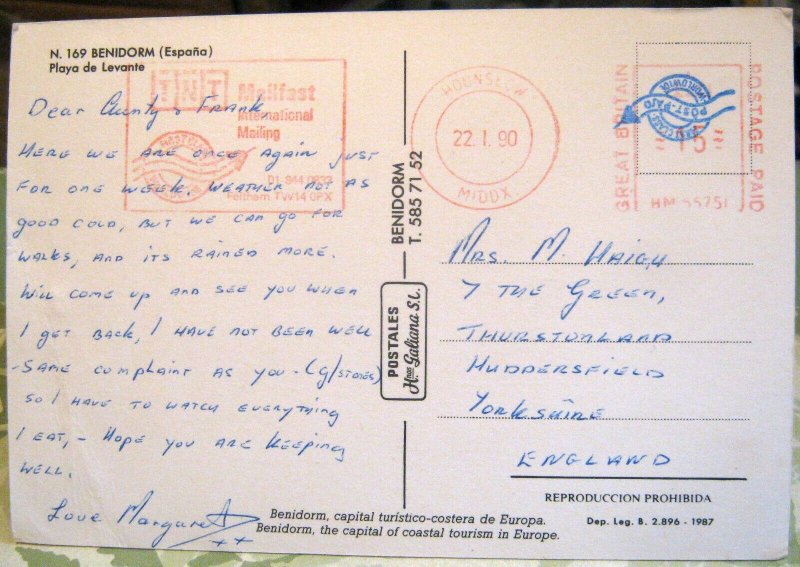 N. 169 BENIDORM (España)
Playa de Levante
TNT Mailfast
International
Mailing
01 844 0833
Feltham TW14 0PX
HOUNSLOW
22. I. 90
MIDDX
GREAT BRITAIN
POSTAGE PAID
POST-PAID
WORLDWIDE
15
Dear Aunty & Frank
Here we are once again just
for one week. Weather not as
good cold, but we can go for
walks, and its rained more.
Will come up and see you when
I get back, I have not been well
- same complaint as you - (g/stones)
so I have to watch everything
I eat, - Hope you are keeping
well.
Love Margaret
xx
BENIDORM
T. 585 71 52
POSTALES
Hnos Galiana S.L.
Mrs. M. Haigh
7 The Green,
Thurstonland
Huddersfield
Yorkshire
England
Benidorm, capital turístico-costera de Europa.
Benidorm, the capital of coastal tourism in Europe.
REPRODUCCION PROHIBIDA
Dep. Leg. B. 2.896 - 1987